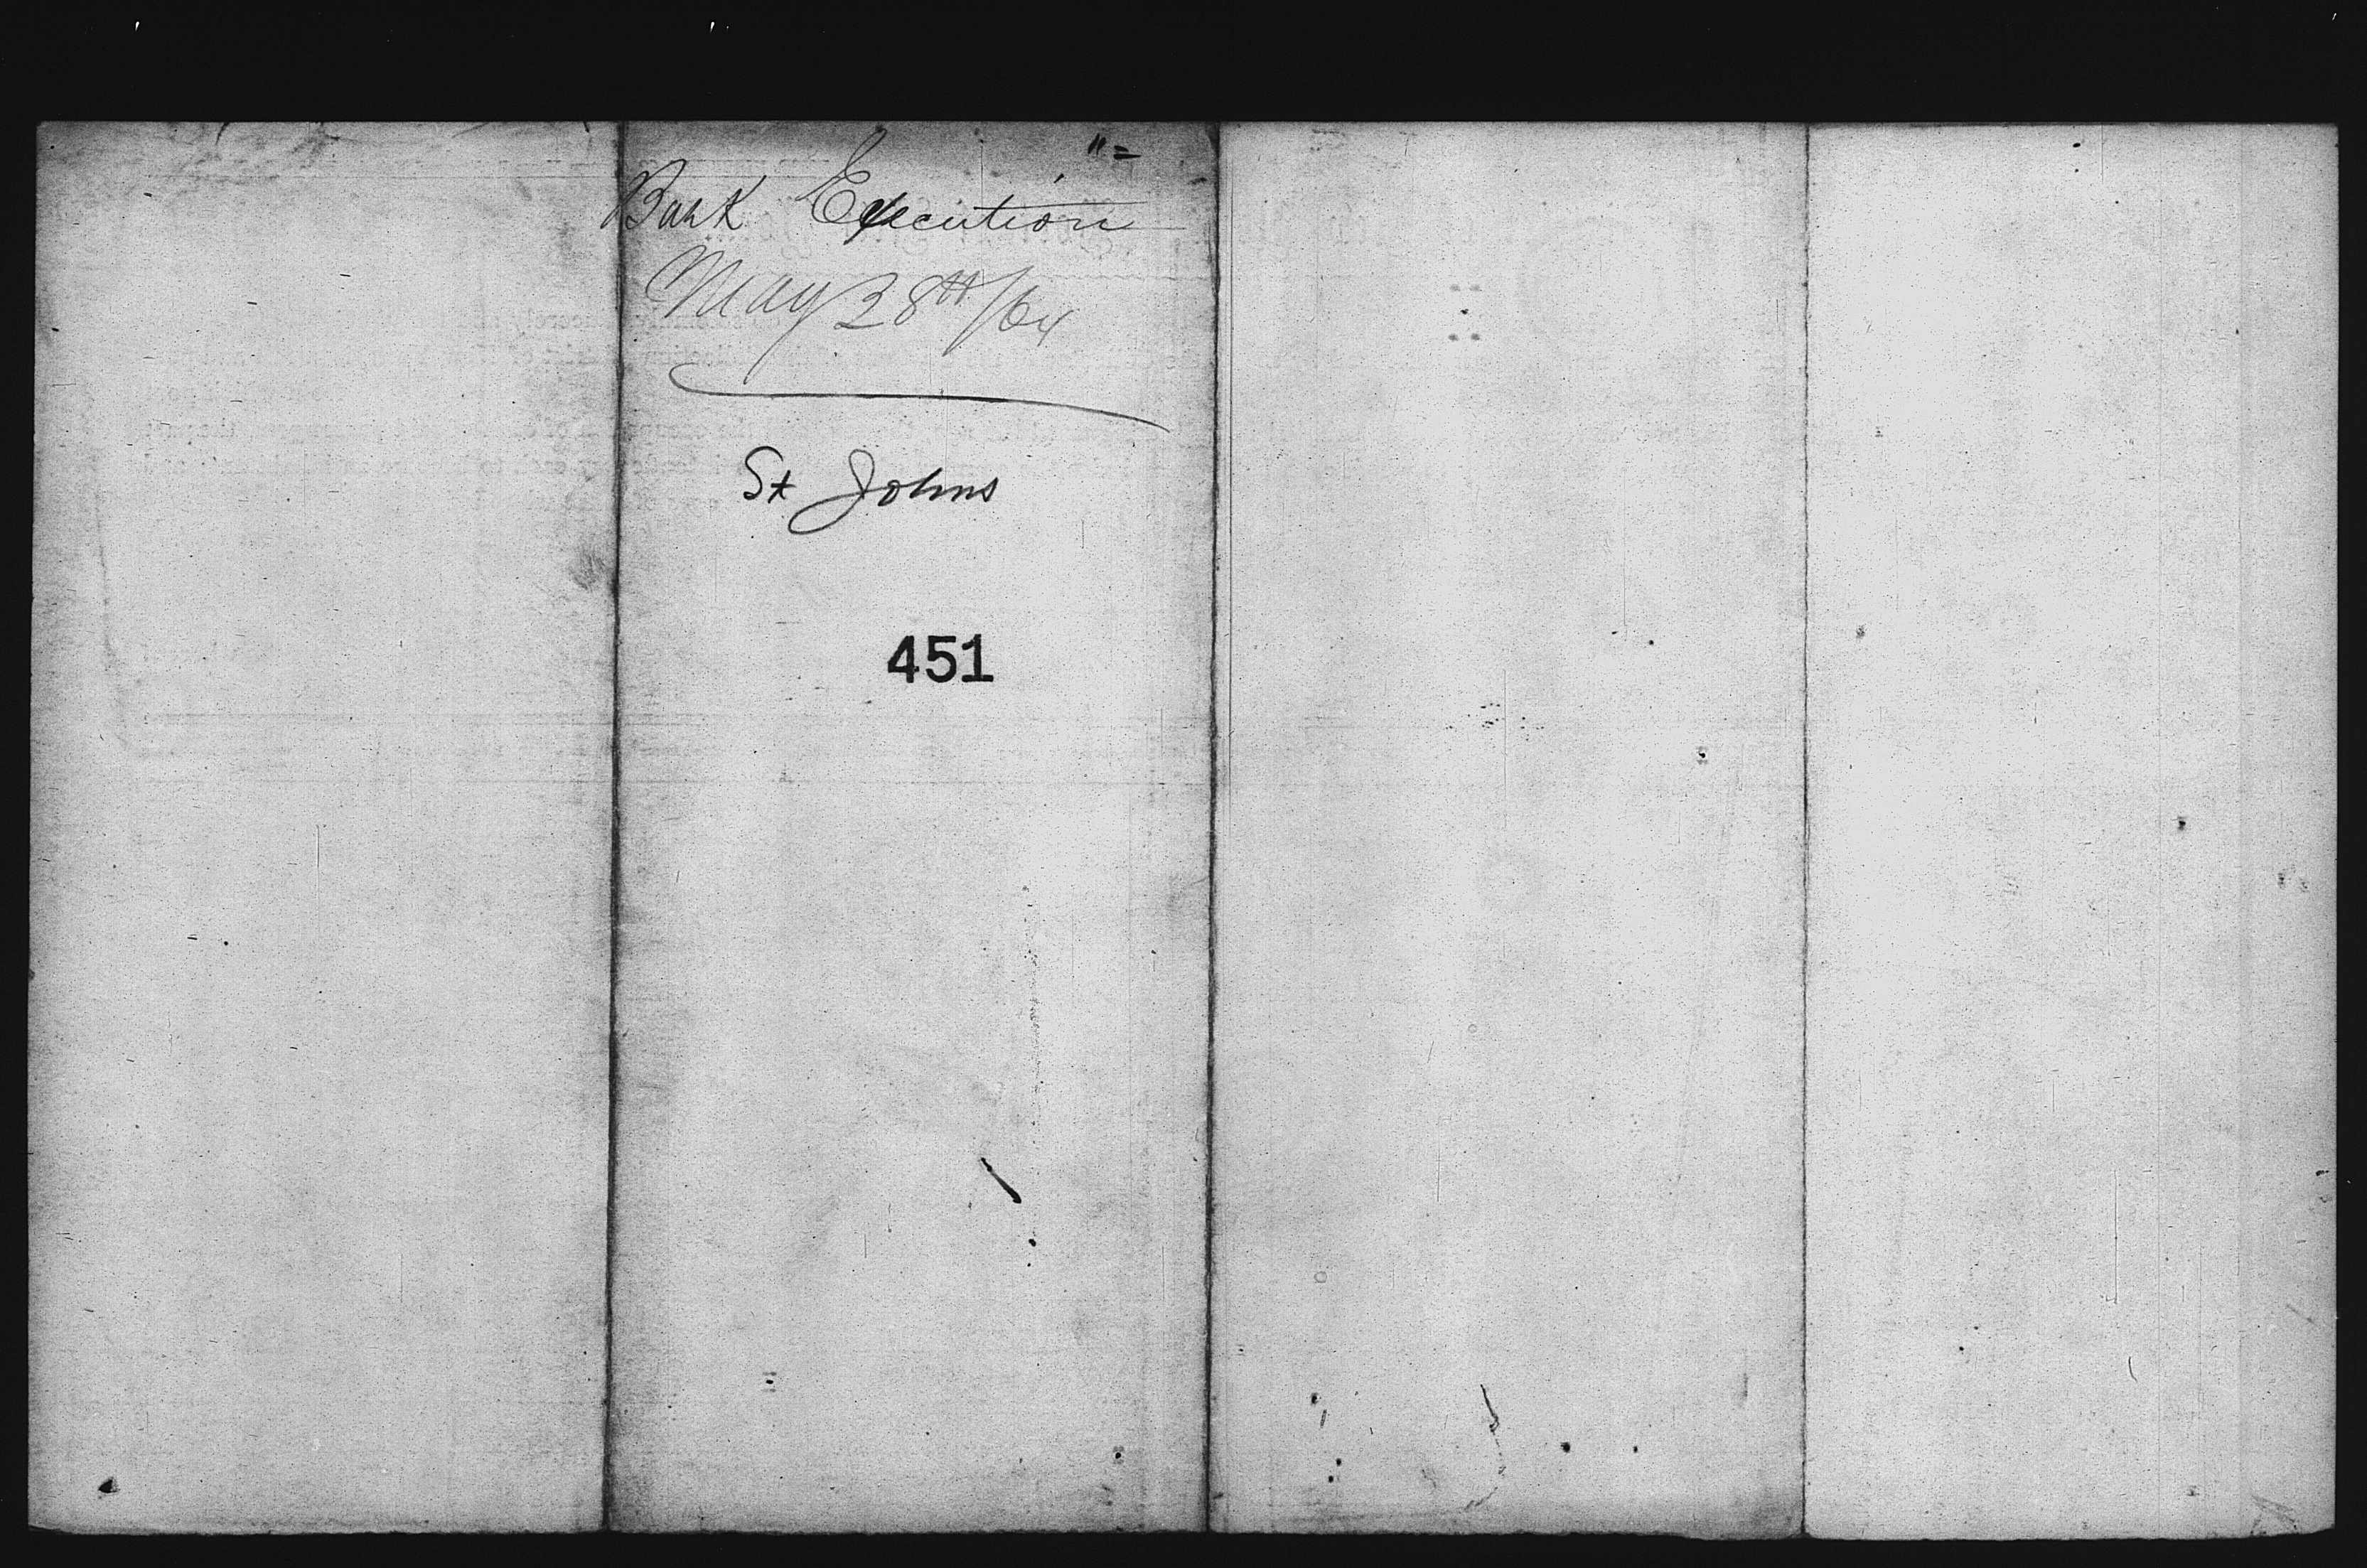 Bark Execution
May 28th/64
St Johns
451